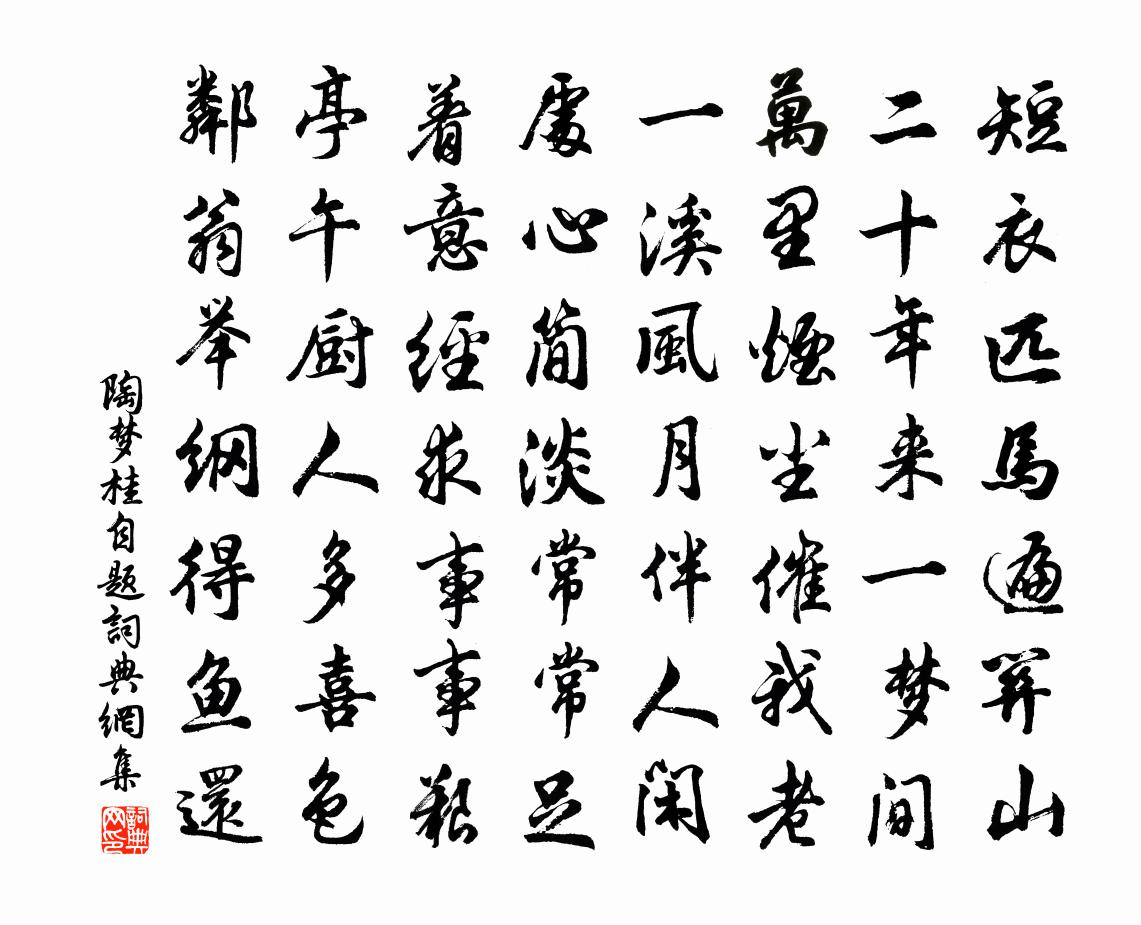 短衣匹馬遍關山
二十年来一梦間
萬里煙尘催我老
一溪風月伴人閑
處心簡淡常常足
着意經求事事艱
亭午厨人多喜色
鄰翁举網得鱼還
陶梦桂自题詞典網集
詞典网印